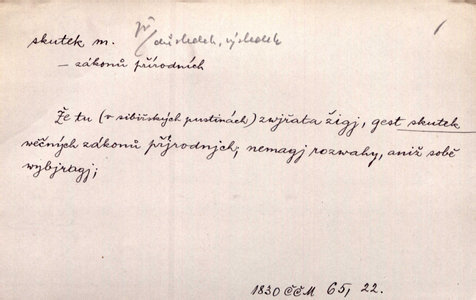 skutek m. důsledek, výsledek
— zákonů přírodních
Že tu (v sibiřských pustinách) zwjřata žigj, gest skutek
wěčných zákonů přjrodných; nemagj rozwahy, aniž sobě
wybjragj;
1830 ČČM 65, 22.